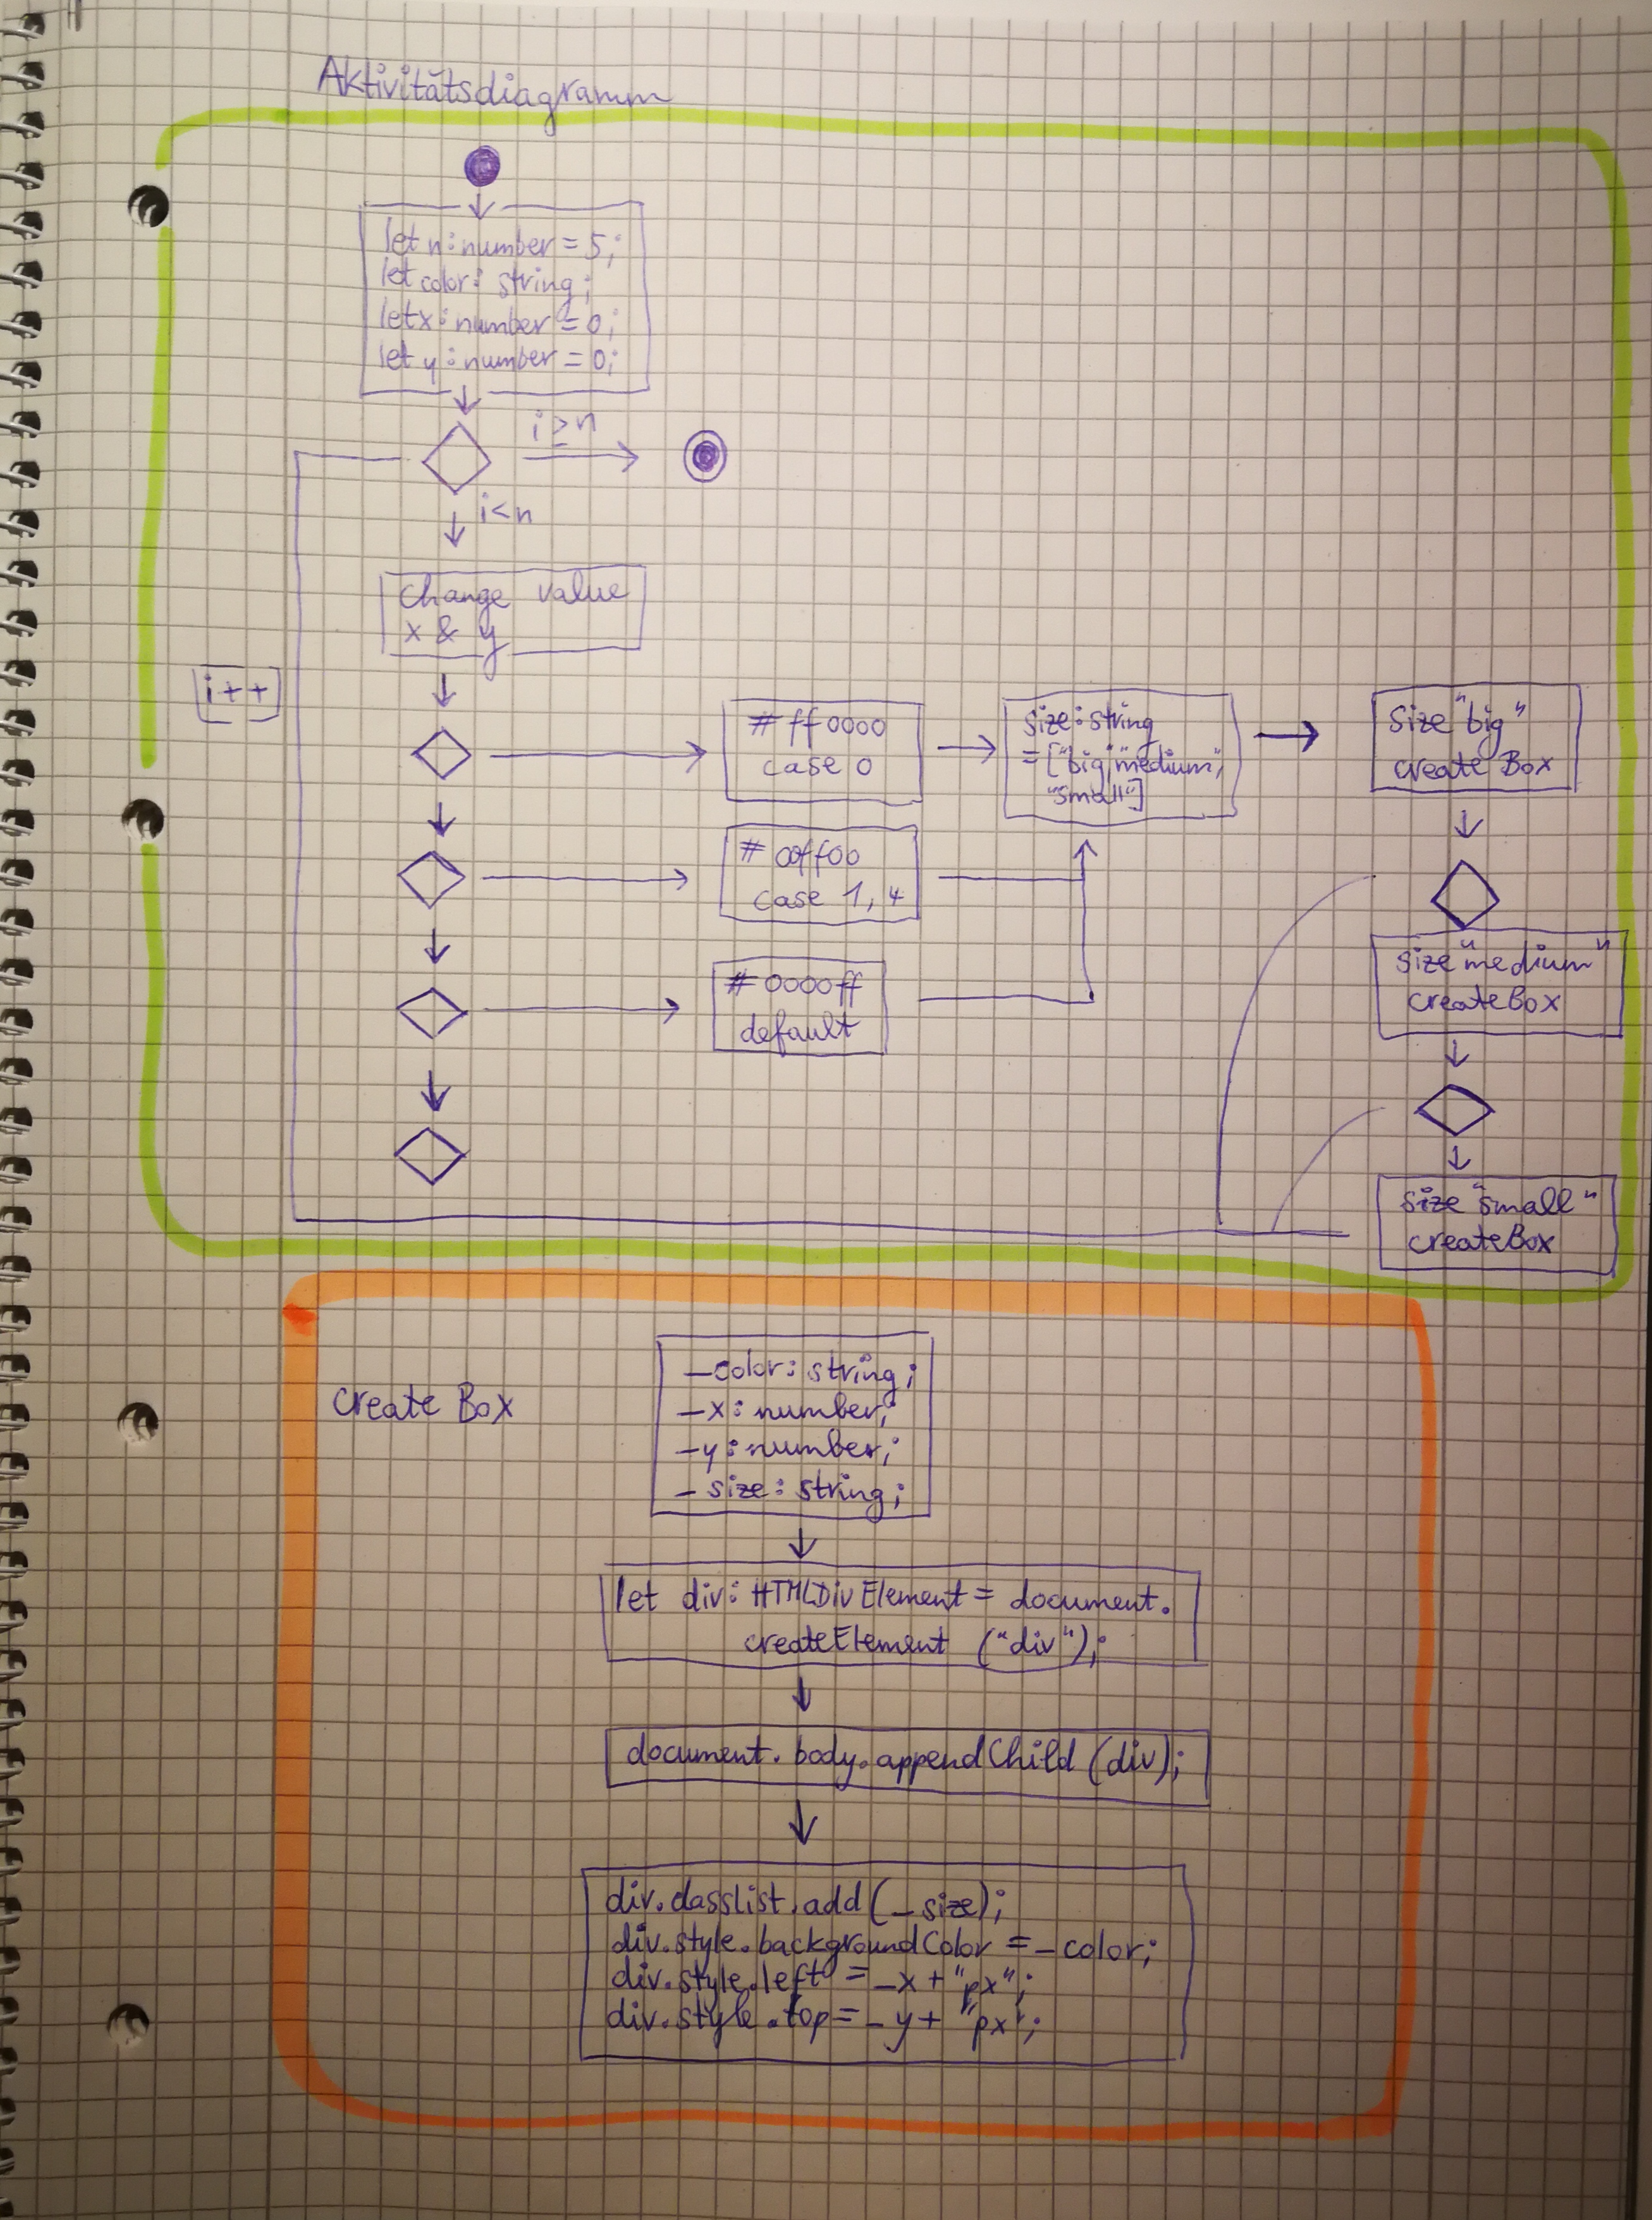 Aktivitätsdiagramm
let n: number = 5;
let color: string;
let x: number = 0;
let y: number = 0;
i ≥ n
i < n
change value
x & y
i++
# ff0000
case 0
size: string
= ["big", "medium",
"small"]
size "big"
create Box
# 00ff00
case 1, 4
size "medium"
createBox
# 0000ff
default
size "small"
createBox
create Box
_color: string;
_x: number;
_y: number;
_size: string;
let div: HTMLDivElement = document.
createElement ("div");
document.body.appendChild (div);
div.classlist.add (_size);
div.style.backgroundColor = _color;
div.style.left = _x + "px";
div.style.top = _y + "px";